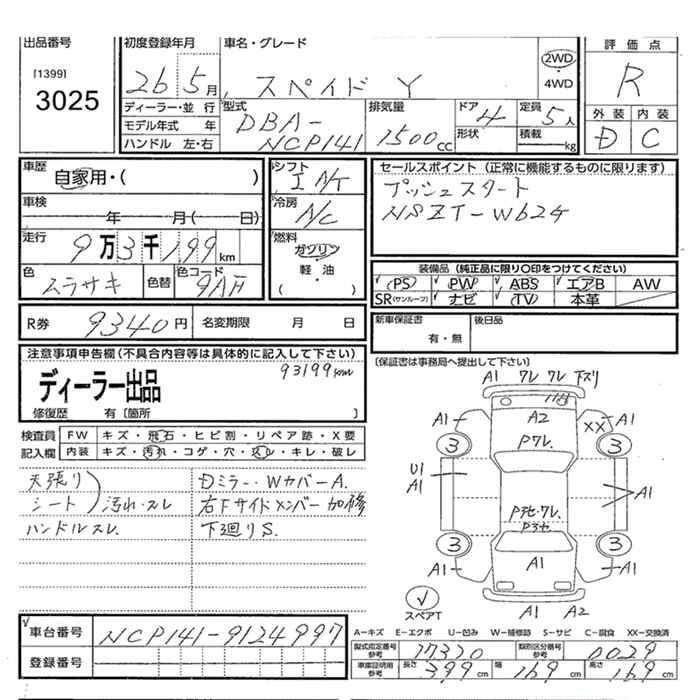 出品番号
[1399]
3025
初度登録年月 車名・グレード
26 5月 スペイド Y
2WD
・
4WD
評価点
R
外装 内装
D C
ディーラー・並行
モデル年式 年
ハンドル 左・右
型式
DBA-
NCP141
排気量
1500cc
ドア 4
形状
定員 5人
積載 kg
車歴
自家用・( )
車検
年 月( 日)
走行
9万3千199km
色
ムラサキ
色替
色コード
9AF
シフト
I A/T
冷房
A/C
燃料
ガソリン
・
軽・油
( )
セールスポイント (正常に機能するものに限ります)
プッシュスタート
NSZT-W62G
装備品 (純正品に限り○印をつけてください)
PS PW ABS エアB AW
SR(サンルーフ) ナビ TV 本革
R券 9340円 名変期限 月 日
新車保証書 後日品
有・無
(保証書は事務局へ提出して下さい)
注意事項申告欄(不具合内容等は具体的に記入して下さい)
93199km
ディーラー出品
修復歴 有〔箇所 〕
検査員 FW キズ・飛石・ヒビ割・リペア跡・X要
記入欄 内装 キズ・汚れ・コゲ・穴・スレ・キレ・破レ
天張り
シート
汚れ・スレ
ハンドルスレ
Dミラー・WカバーA.
右Fサイドメンバー 加修
下廻りS.
A1 フレ フレ 下スリ
A1 A2 XX A1
Pフレ.
3 3
U1
A1
A1
Pヲセ・フレ.
Pヲセ
3 3
A1 A1 A1
スペアT
A1 A2
車台番号 NCP141-9124997
登録番号
A-キズ E-エクボ U-凹み W-補修跡 S-サビ C-腐食 XX-交換済
型式指定番号 参考 17320 類別区分番号 参考 0029
車庫証明用 参考 長さ 399cm 幅 169cm 高さ 169cm